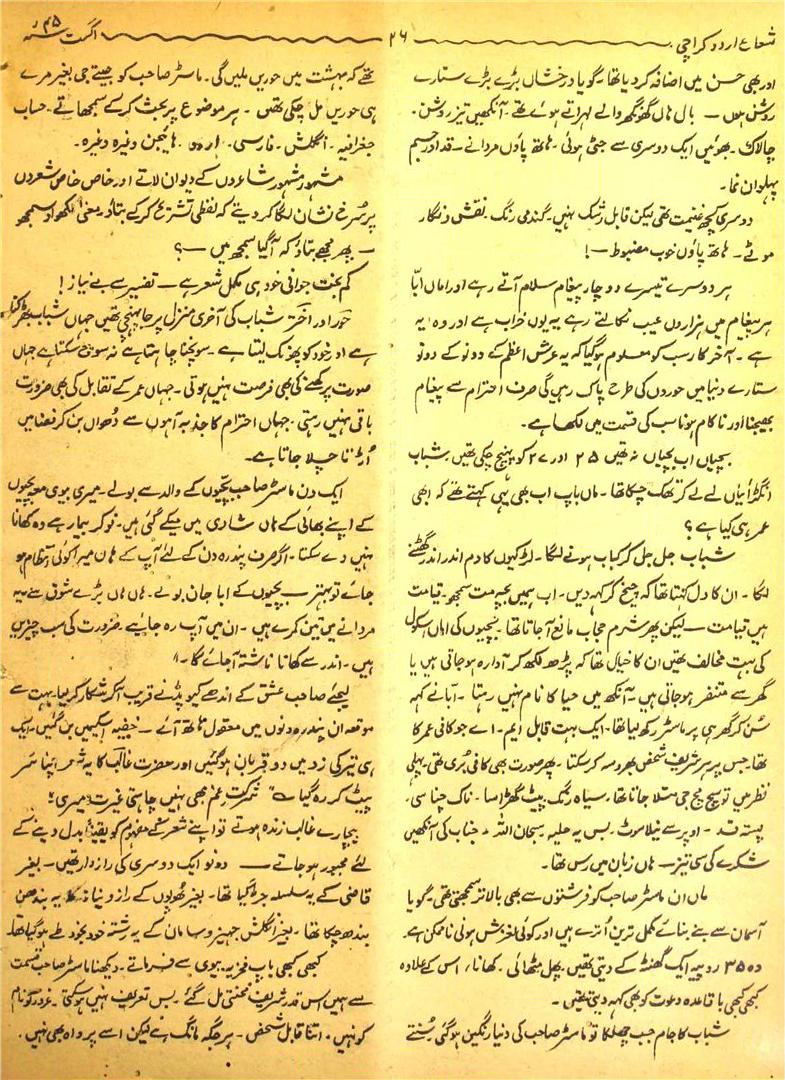 شعاع اردو کراچی ۲۶ اگست ۴۵ء
اور بھی حسن میں اضافہ کر دیا تھا۔ گویا درخشاں بڑے بڑے ستارے
روشن ہوں — بال ہاں گھونگھر والے لہراتے ہوئے تھے۔ آنکھیں تیز روشن۔
چالاک۔ بھوئیں ایک دوسری سے جٹی ہوئی۔ ہاتھ پاؤں مردانے۔ قد اور جسم
پہلوان نما۔
دوسری کچھ غنیمت تھی لیکن قابل رشک نہیں۔ گندمی رنگ۔ نقش و نگار
موٹے۔ ہاتھ پاؤں خوب مضبوط —!
ہر دوسرے تیسرے دو چار پیغام سلام آتے رہے اور اماں ابّا
ہر پیغام میں ہزاروں عیب نکالتے رہے یہ یوں خراب ہے اور وہ یہ
ہے۔ آخر کار سب کو معلوم ہو گیا کہ یہ عرش اعظم کے دونو کے دونو
ستارے دنیا میں حوروں کی طرح پاک رہیں گی صرف احترام سے پیغام
بھیجنا اور ناکام ہونا سب کی قسمت میں لکھا ہے۔
بچیاں اب بچیاں نہ تھیں ۲۵ اور ۲۷ کو پہنچ چکی تھیں۔ شباب
انگڑائیاں لے لے کر تھک چکا تھا۔ ماں باپ اب بھی یہی کہتے تھے کہ ابھی
عمر ہی کیا ہے؟
شباب جل جل کر کباب ہونے لگا۔ لڑکیوں کا دم اندر اندر گھٹنے
لگا۔ ان کا دل کہتا تھا کہ چیخ کر کہہ دیں۔ اب ہمیں بچہ مت سمجھو۔ قیامت
ہیں قیامت — لیکن پھر شرم حجاب مانع آ جاتا تھا۔ بچیوں کی اماں اسکول
کی بہت مخالف تھیں ان کا خیال تھا کہ پڑھ لکھ کر آوارہ ہو جاتی ہیں یا
گھر سے متنفر ہو جاتی ہیں۔ آنکھ میں حیا کا نام نہیں رہتا۔ ابا نے کہہ
سُن کر گھر ہی پر ماسٹر رکھ لیا تھا۔ ایک بہت قابل ایم۔ اے جو کافی عمر کا
تھا۔ جس پر ہر شریف شخص بھروسہ کر سکتا۔ پھر صورت بھی کافی بُری تھی۔ پہلی
نظر میں تو سچ مچ جی متلا جاتا تھا۔ سیاہ رنگ۔ پیٹ گھڑا سا۔ ناک چنا سی۔
پستہ قد۔ اوپر سے نیلا سوٹ۔ بس یہ حلیہ۔ سبحان اللہ۔ جناب کی آنکھیں
شکرے کی سی تیز — ہاں زبان میں رس تھا۔
ماں ان ماسٹر صاحب کو فرشتوں سے بھی بالاتر سمجھتی تھی۔ گویا
آسمان سے بنے بنائے مکمل ترین اُترے ہیں اور کوئی لغزش ہونی ناممکن ہے۔
وہ ۳۵ روپیہ ایک گھنٹہ کے دیتی تھیں۔ پھل مٹھائی۔ کھانا، اس کے علاوہ
کبھی کبھی باقاعدہ دعوت کو بھی کہہ دیتی تھیں۔
شباب کا جام جب چھلکا تو ماسٹر صاحب کی دنیا رنگین ہو گئی سُنتے
تھے کہ بہشت میں حوریں ملیں گی۔ ماسٹر صاحب کو جیتے جی بغیر مرے
ہی حوریں مل چکی تھیں۔ ہر موضوع پر بحث کر کے سمجھاتے۔ حساب
جغرافیہ۔ انگلش۔ فارسی۔ اردو۔ ہائیجن وغیرہ وغیرہ۔
مشہور مشہور شاعروں کے دیوان لاتے اور خاص خاص شعروں
پر سُرخ نشان لگا کر دیتے کہ لفظی تشریح کر کے بتاؤ۔ معنی لکھو اور سمجھو
— پھر مجھے بتاؤ کہ آگیا سمجھ میں —؟
کم بخت جوانی خود ہی مکمل شعر ہے — تفسیر سے بے نیاز!
حور اور اختر شباب کی آخری منزل پر جا پہنچی تھیں جہاں شباب بھڑکتا
ہے اور خود کو پھونک لیتا ہے۔ سوچنا چاہتا ہے نہ سوچ سکتا ہے جہاں
صورت پرکھنے کی بھی فرصت نہیں ہوتی۔ جہاں عمر کے تقابل کی بھی ضرورت
باقی نہیں رہتی۔ جہاں احترام کا جذبہ آہوں سے دُھواں بن کر فضا میں
اُڑتا چلا جاتا ہے۔
ایک دن ماسٹر صاحب بچیوں کے والد سے بولے۔ میری بیوی معہ بچیوں
کے اپنے بھائی کے ہاں شادی میں میکے گئی ہیں۔ نوکر بیمار ہے وہ کھانا
نہیں دے سکتا۔ اگر صرف پندرہ دن کے لئے آپ کے ہاں میرا کوئی انتظام ہو
جائے تو بہتر — بچیوں کے ابا جان بولے۔ ہاں ہاں بڑے شوق سے یہ
مردانے میں تین کمرے ہیں۔ ان میں آپ رہ جائیے۔ ضرورت کی سب چیزیں
ہیں۔ اندر سے کھانا ناشتہ آ جائے گا۔"
لیجئے صاحب عشق کے اندھے کیوپڈ نے قریب آکر شکار کر لیا۔ بہت سے
موقعہ ان پندرہ دنوں میں معقول ہاتھ آئے — خفیہ اسکیمیں بن گئیں۔ ایک
ہی تیر کی زد میں دو قربان ہو گئیں اور حضرت غالب کا یہ شعر اپنا سر
پیٹ کر رہ گیا ؎ "شرکت غم بھی نہیں چاہتی غیرت میری"
بیچارے غالب زندہ ہوتے تو اپنے شعر کے مفہوم کو یقیناً بدل دینے کے
لئے مجبور ہو جاتے — دونو ایک دوسری کی رازدار تھیں۔ بغیر
قاضی کے یہ سلسلہ جڑ گیا تھا۔ بغیر پھولوں کے راز و نیاز کا یہ بندھن
بندھ چکا تھا۔ بغیر انگلش جہیز و سامان کے یہ رشتہ خود بخود طے ہو گیا تھا۔
کبھی کبھی باپ فخریہ بیوی سے فرماتے۔ دیکھنا ماسٹر صاحب قسمت
سے ہمیں اس قدر شریف محنتی مل گئے۔ بس تعریف نہیں ہو سکتی۔ غرور کو نام
کو نہیں۔ اتنا قابل شخص۔ ہر جگہ مانگ ہے لیکن اسے پرواہ بھی نہیں۔